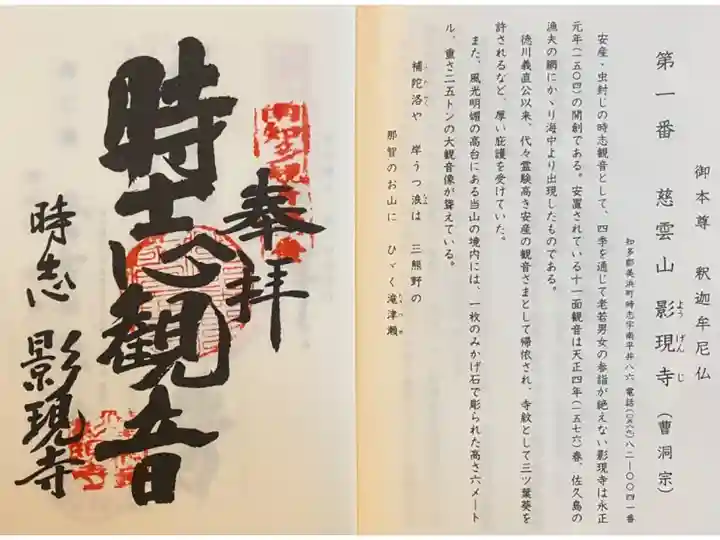 御本尊 釈迦牟尼仏
第一番 慈雲山 影現寺（曹洞宗）
ようげんじ
知多郡美浜町時志字南平井八六 電話(〇五六九)八二―〇〇四一番
安産・虫封じの時志観音として、四季を通じて老若男女の参詣が絶えない影現寺は永正
元年(一五〇四)の開創である。安置されている十一面観音は天正四年(一五七六)春、佐久島の
漁夫の網にかゝり海中より出現したものである。
徳川義直公以来、代々霊験高き安産の観音さまとして帰依され、寺紋として三ツ葉葵を
許されるなど、厚い庇護を受けていた。
また、風光明媚の高台にある当山の境内には、一枚のみかげ石で彫られた高さ六メート
ル、重さ二五トンの大観音像が聳えている。
補陀洛や 岸うつ浪は 三熊野の
那智のお山に ひゞく滝津瀬
奉拝
時志観音
時志 影現寺